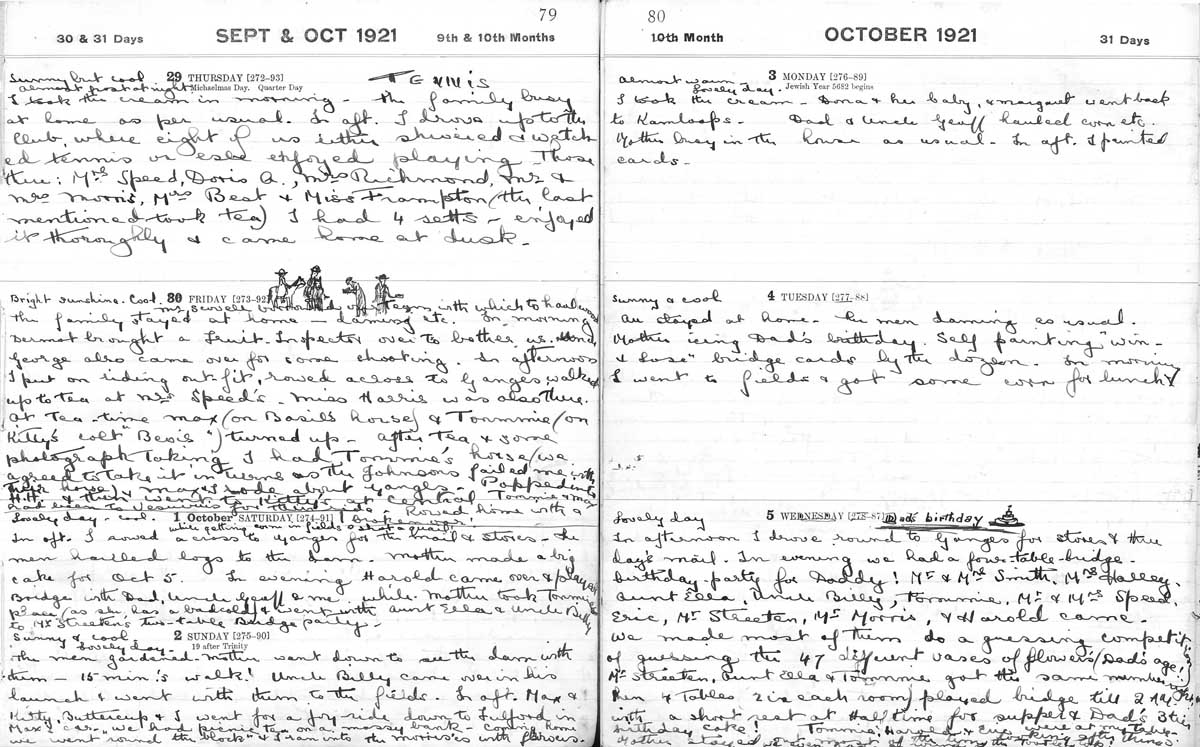 79
30 & 31 Days SEPT & OCT 1921 9th & 10th Months
Sunny but cool. 29 THURSDAY [272-93] TENNIS
almost frost at night Michaelmas Day. Quarter Day
I took the cream in morning - The family busy
at home as per usual. In aft. I drove up to the
Club, where eight of us either shivered & watch
ed tennis or else enjoyed playing. Those
there: Mrs Speed, Doris A., Mrs Richmond, Mr &
Mrs Morris, Mrs Beat & Miss Frampton (the last
mentioned took tea) I had 4 setts - enjoyed
it thoroughly & came home at dusk.
Bright sunshine. Cool. 30 FRIDAY [273-92]
Mr Sewell borrowed our team with which to haul wood
the family stayed at home - damming etc. In morning
Dermot brought a Fruit Inspector over to bother us.
George also came over for some shooting. In afternoon
I put on riding outfit, rowed across to Ganges, walked
up to tea at Mrs Speed's. Miss Harris was also there.
At tea-time Max (on Basil's horse) & Tommie (on
Kitty's colt "Bevis") turned up - after tea & some
photograph taking, I had Tommie's horse (we
agreed to take it in turns as the Johnsons failed me with
their horse) & Max & I rode about Ganges - Popped into
H.H. & then went to Kitty's at central Tommie & Max
had been to Vesuvius for their ride - Rowed home with a
broken oar!
Lovely day - cool. 1 October SATURDAY [274-91]
while getting corn in fields shot a quail!
In aft. I rowed across to Ganges for the mail & stores - The
men hauled logs to the dam. Mother made a big
cake for Oct 5. In evening Harold came over & played
Bridge with Dad, Uncle Geoff & me while Mother took Tommie's
place (as she has a bad cold) & went with Aunt Ella & Uncle Billy
to Mr Streeten's two-table Bridge party -
Sunny & cool. 2 SUNDAY [275-90]
Lovely day - 19 after Trinity
The men gardened. Mother went down to see the dam with
them - 15 min's walk! Uncle Billy came over in his
launch & went with them to the fields. In aft. Max &
Kitty, Buttercup & I went for a joy-ride down to Fulford in
Max's car - we had picnic tea on a mossy bank - coming home
we went "round the block" & I ran into the Morrises with flowers.
80
10th Month OCTOBER 1921 31 Days
Almost warm - 3 MONDAY [276-89]
lovely day. Jewish Year 5682 begins
I took the cream - Dona & her baby, & Margaret went back
to Kamloops - Dad & Uncle Geoff hauled corn etc.
Mother busy in the house as usual - In aft. I painted
cards -
Sunny & cool 4 TUESDAY [277-88]
All stayed at home - The men damming as usual.
Mother icing Dad's birthday. Self painting "win-
& lose" bridge cards by the dozen. In morning
I went to fields & got some corn for lunch
Lovely day 5 WEDNESDAY [278-87] Dad's birthday
In afternoon I drove round to Ganges for stores & three
day's mail. In evening we had a four-table-bridge-
birthday-party for Daddy! Mr & Mrs Smith, Mrs Halley,
Aunt Ella, Uncle Billy, Tommie, Mr & Mrs Speed,
Eric, Mr Streeten, Mr Morris, & Harold came -
We made most of them do a guessing competition
of guessing the 47 different vases of flowers (Dad's age!)
Mr Streeten, Aunt Ella & Tommie got the same number right
then 4 Tables (2 in each room) played bridge till 2 A.M.
with a short rest at Half time for supper & Dad's 3 tier
birthday cake! Tommie, Harold &
Mother stayed